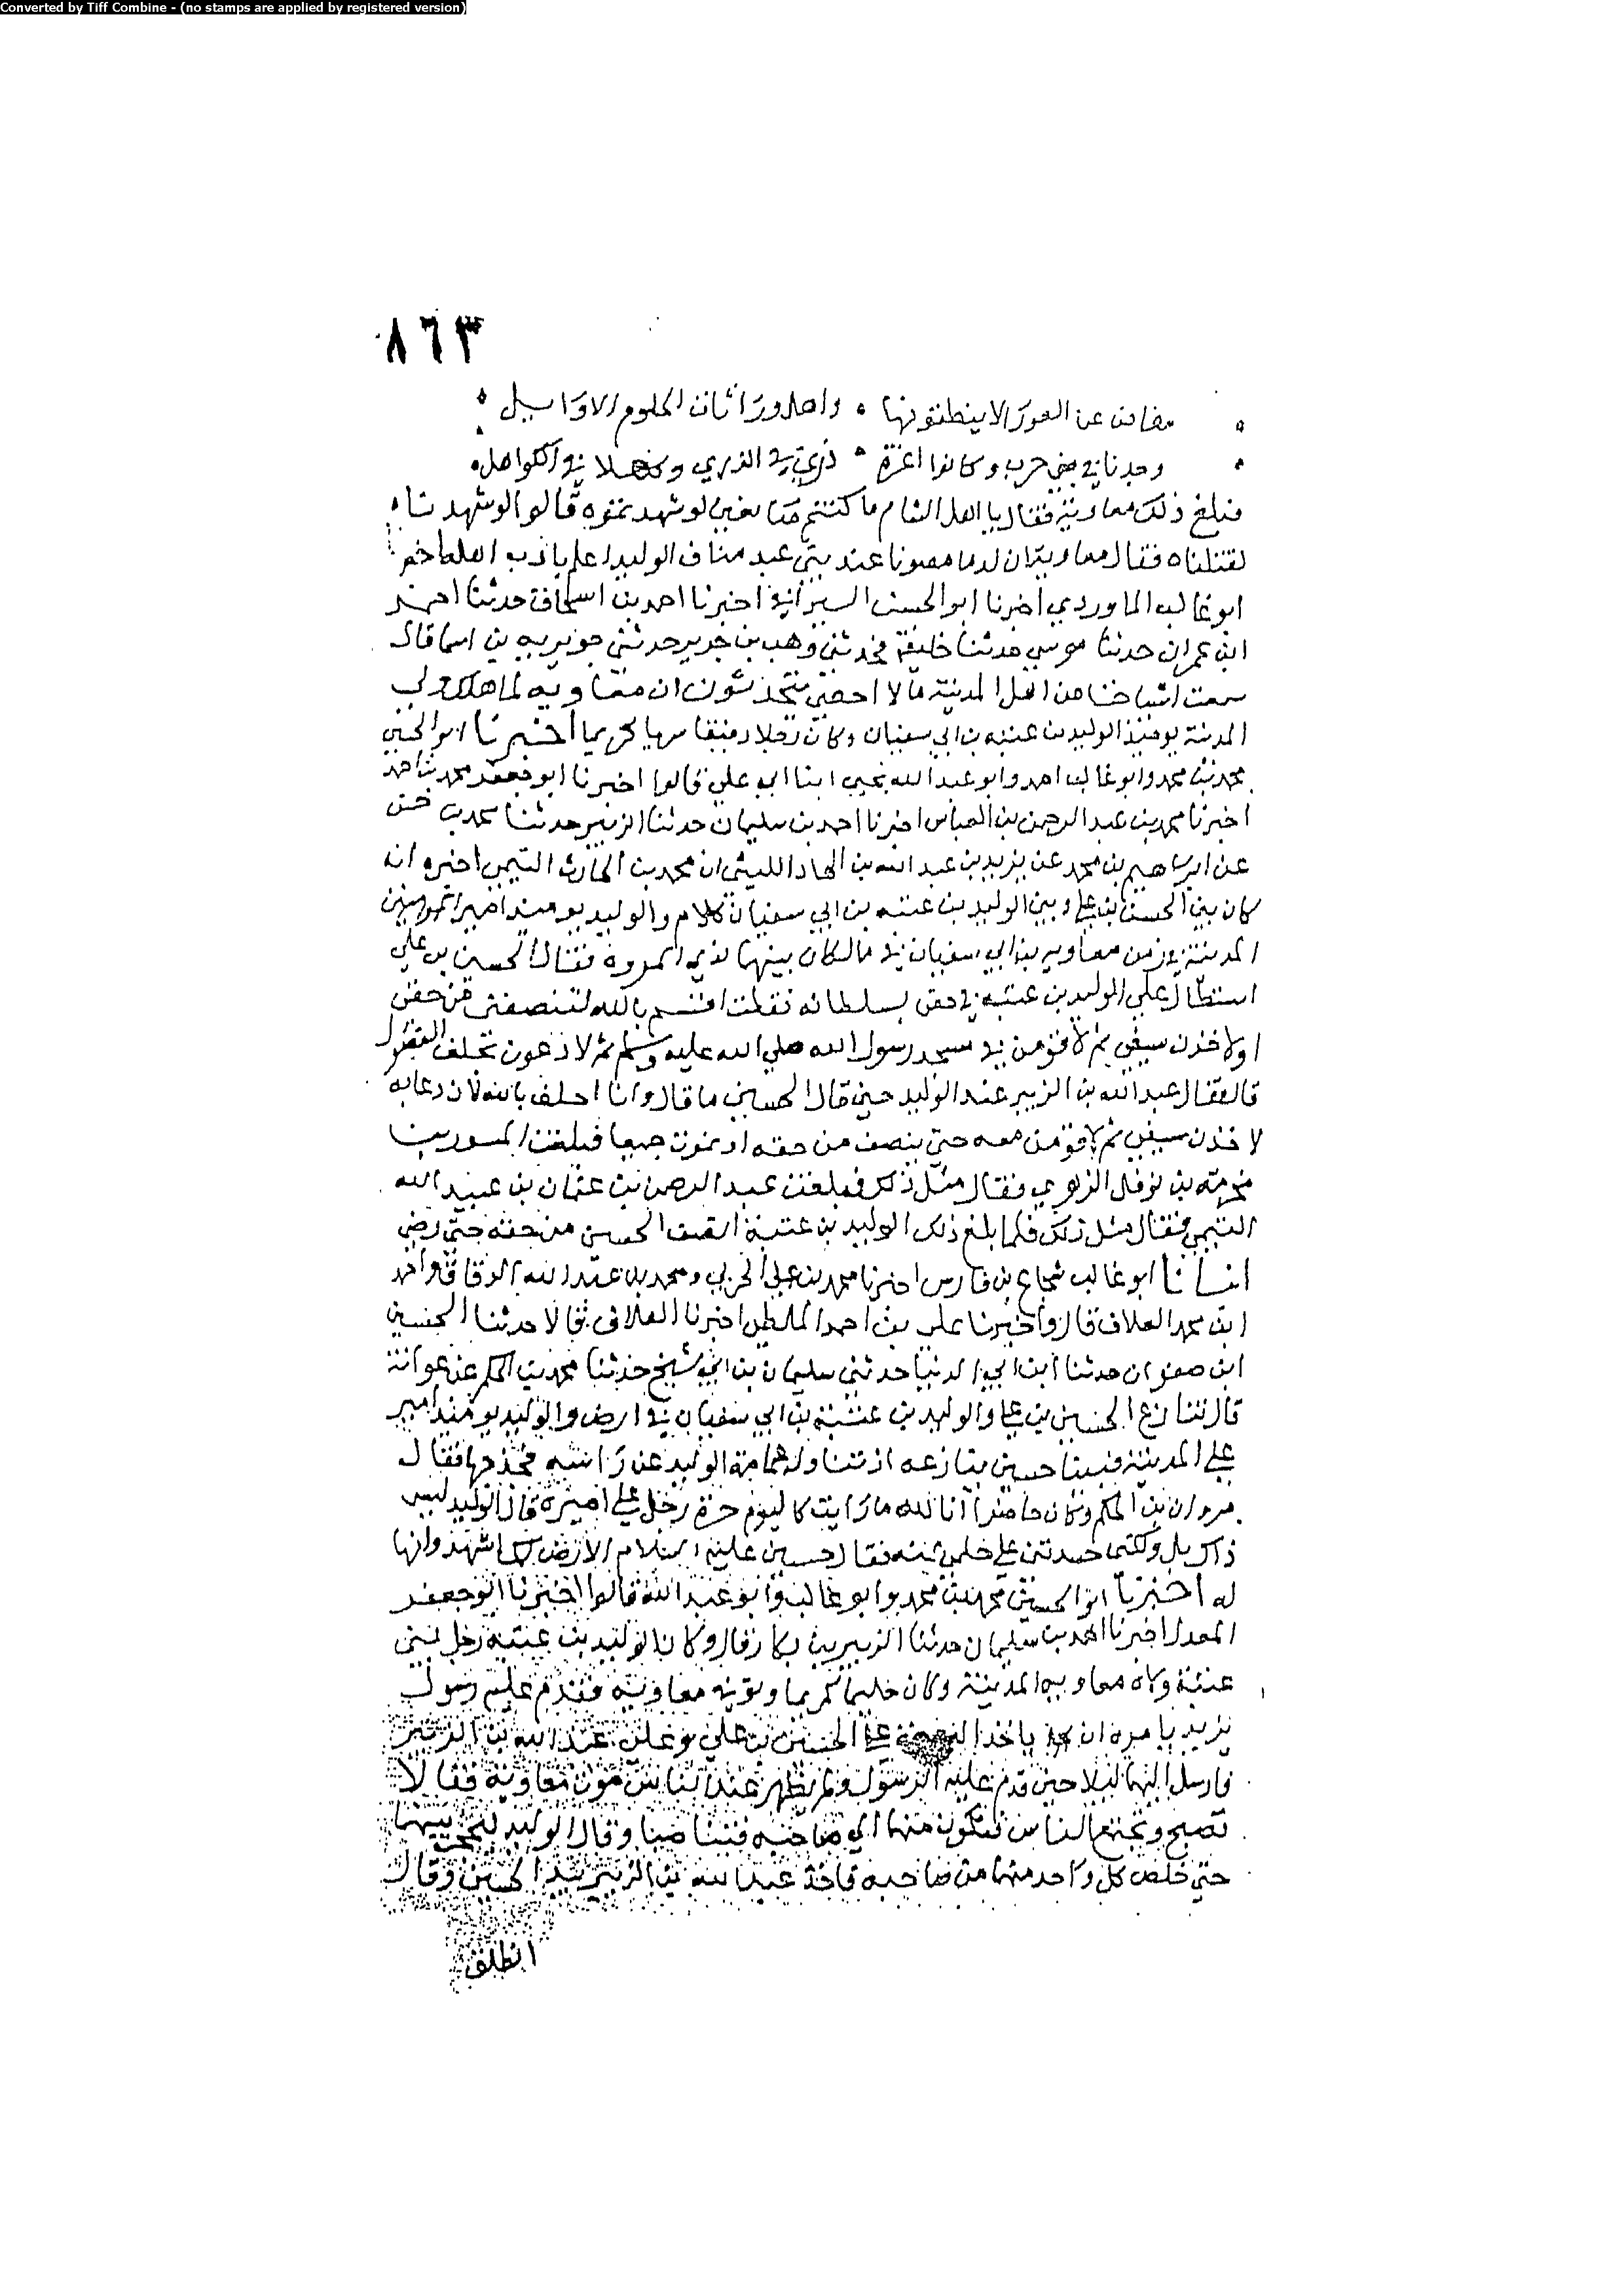 Converted by Tiff Combine - (no stamps are applied by registered version)
٨٦٣
عن العورا لا ينطقونها ٠ واهل وراثات الحلوم الاوايل
وجدنا بني حرب وكانوا اعزة ٠ ذري في الذري وكهلا في الكواهل
فبلغ ذلك معاوية فقال يا اهل الشام ما كنتم صانعين لو شهدتموه قالوا لو شهدناه
لقتلناه فقال معاوية ان لدما مصونا عند بني عبد مناف الوليد اعلم بادب اهله اخبرنا
ابو غالب الماوردي اخبرنا ابو الحسن السيرافي اخبرنا احمد بن اسحاق حدثنا احمد
ابن عمران حدثنا موسي حدثنا خليفة حدثني وهب بن جرير حدثني جويريه بن اسما قال
سمعت اشياخنا من اهل المدينة ما لا احصي يتحدثون ان معاويه لما هلك وعلي
المدينة يومئذ الوليد بن عتبه بن ابي سفيان وكان رجلا رفيقا سريا كريما اخبرنا ابو الحسين
محمد بن محمد وابو غالب احمد وابو عبد الله يحيي ابنا ابي علي قالوا اخبرنا ابو جعفر محمد بن احمد
اخبرنا محمد بن عبد الرحمن بن العباس اخبرنا احمد بن سليمان حدثنا الزبير حدثنا محمد بن حسن
عن ابراهيم بن محمد عن يزيد بن عبد الله بن الهاد الليثي ان محمد بن الحارث التيمي اخبره انه
كان بين الحسين بن علي وبين الوليد بن عتبه بن ابي سفيان كلام والوليد يومئذ امير
المدينة في زمن معاويه بن ابي سفيان في مال كان بينهما بذي المروة فقال الحسين بن علي
استطال علي الوليد بن عتبه في حقي بسلطانه فقلت اقسم بالله لتنصفني من حقي
او لاخذن سيفي ثم لاقومن في مسجد رسول الله صلي الله عليه وسلم ثم لادعون بحلف الفضول
قال فقال عبد الله بن الزبير عند الوليد حين قال الحسين ما قال وانا احلف بالله لان دعا به
لاخذن سيفي ثم لاقومن معه حتي ينصف من حقه او نموت جميعا فبلغت المسور بن
مخرمه بن نوفل الزهري فقال مثل ذلك فبلغت عبد الرحمن بن عثمان بن عبيد الله
التيمي فقال مثل ذلك فلما بلغ ذلك الوليد بن عتبة انصف الحسين من حقه حتي رضي
انبانا ابو غالب شجاع بن فارس اخبرنا محمد بن علي الحربي ومحمد بن عبد الله الوقاف واحمد
ابن محمد العلاف قال واخبرنا علي بن احمد الملطي اخبرنا العلاف قالا حدثنا الحسين
ابن صفوان حدثنا ابن ابي الدنيا حدثني سليمان بن ابي شيخ حدثنا محمد بن الحكم عن عوانة
قال تنازع الحسين بن علي والوليد بن عتبة بن ابي سفيان في ارض والوليد يومئذ امير
علي المدينة فبينا حسين ينازعه اذ تناول عمامة الوليد عن راسه فجذبها فقال
مروان بن الحكم وكان حاضرا انا لله ما رايت كاليوم جرة رجل علي اميره قال الوليد ليس
ذاك بك ولكنك حسدتني علي حلمي عنه فقال حسين عليه السلام الارض لك اشهدوا انها
له اخبرنا ابو الحسين محمد بن محمد وابو غالب وابو عبد الله قالوا اخبرنا ابو جعفر
المعدل اخبرنا احمد بن سليمان حدثنا الزبير بن بكار قال وكان الوليد بن عتبه رجل بني
عتبة ولاه معاويه المدينة وكان حليما كريما وتوفي معاوية فقدم عليه رسول
يزيد يامره ان ياخذ البيعة علي الحسين بن علي وعلي عبد الله بن الزبير
فارسل اليهما ليلا حين قدم عليه الرسول ولم يظهر عند الناس موت معاوية فقالا
نصبح ويجتمع الناس فنكون منهم
حتي خلص كل واحد منهما من صاحبه فاخذ عبد الله بن الزبير بيد الحسين وقال
انطلق